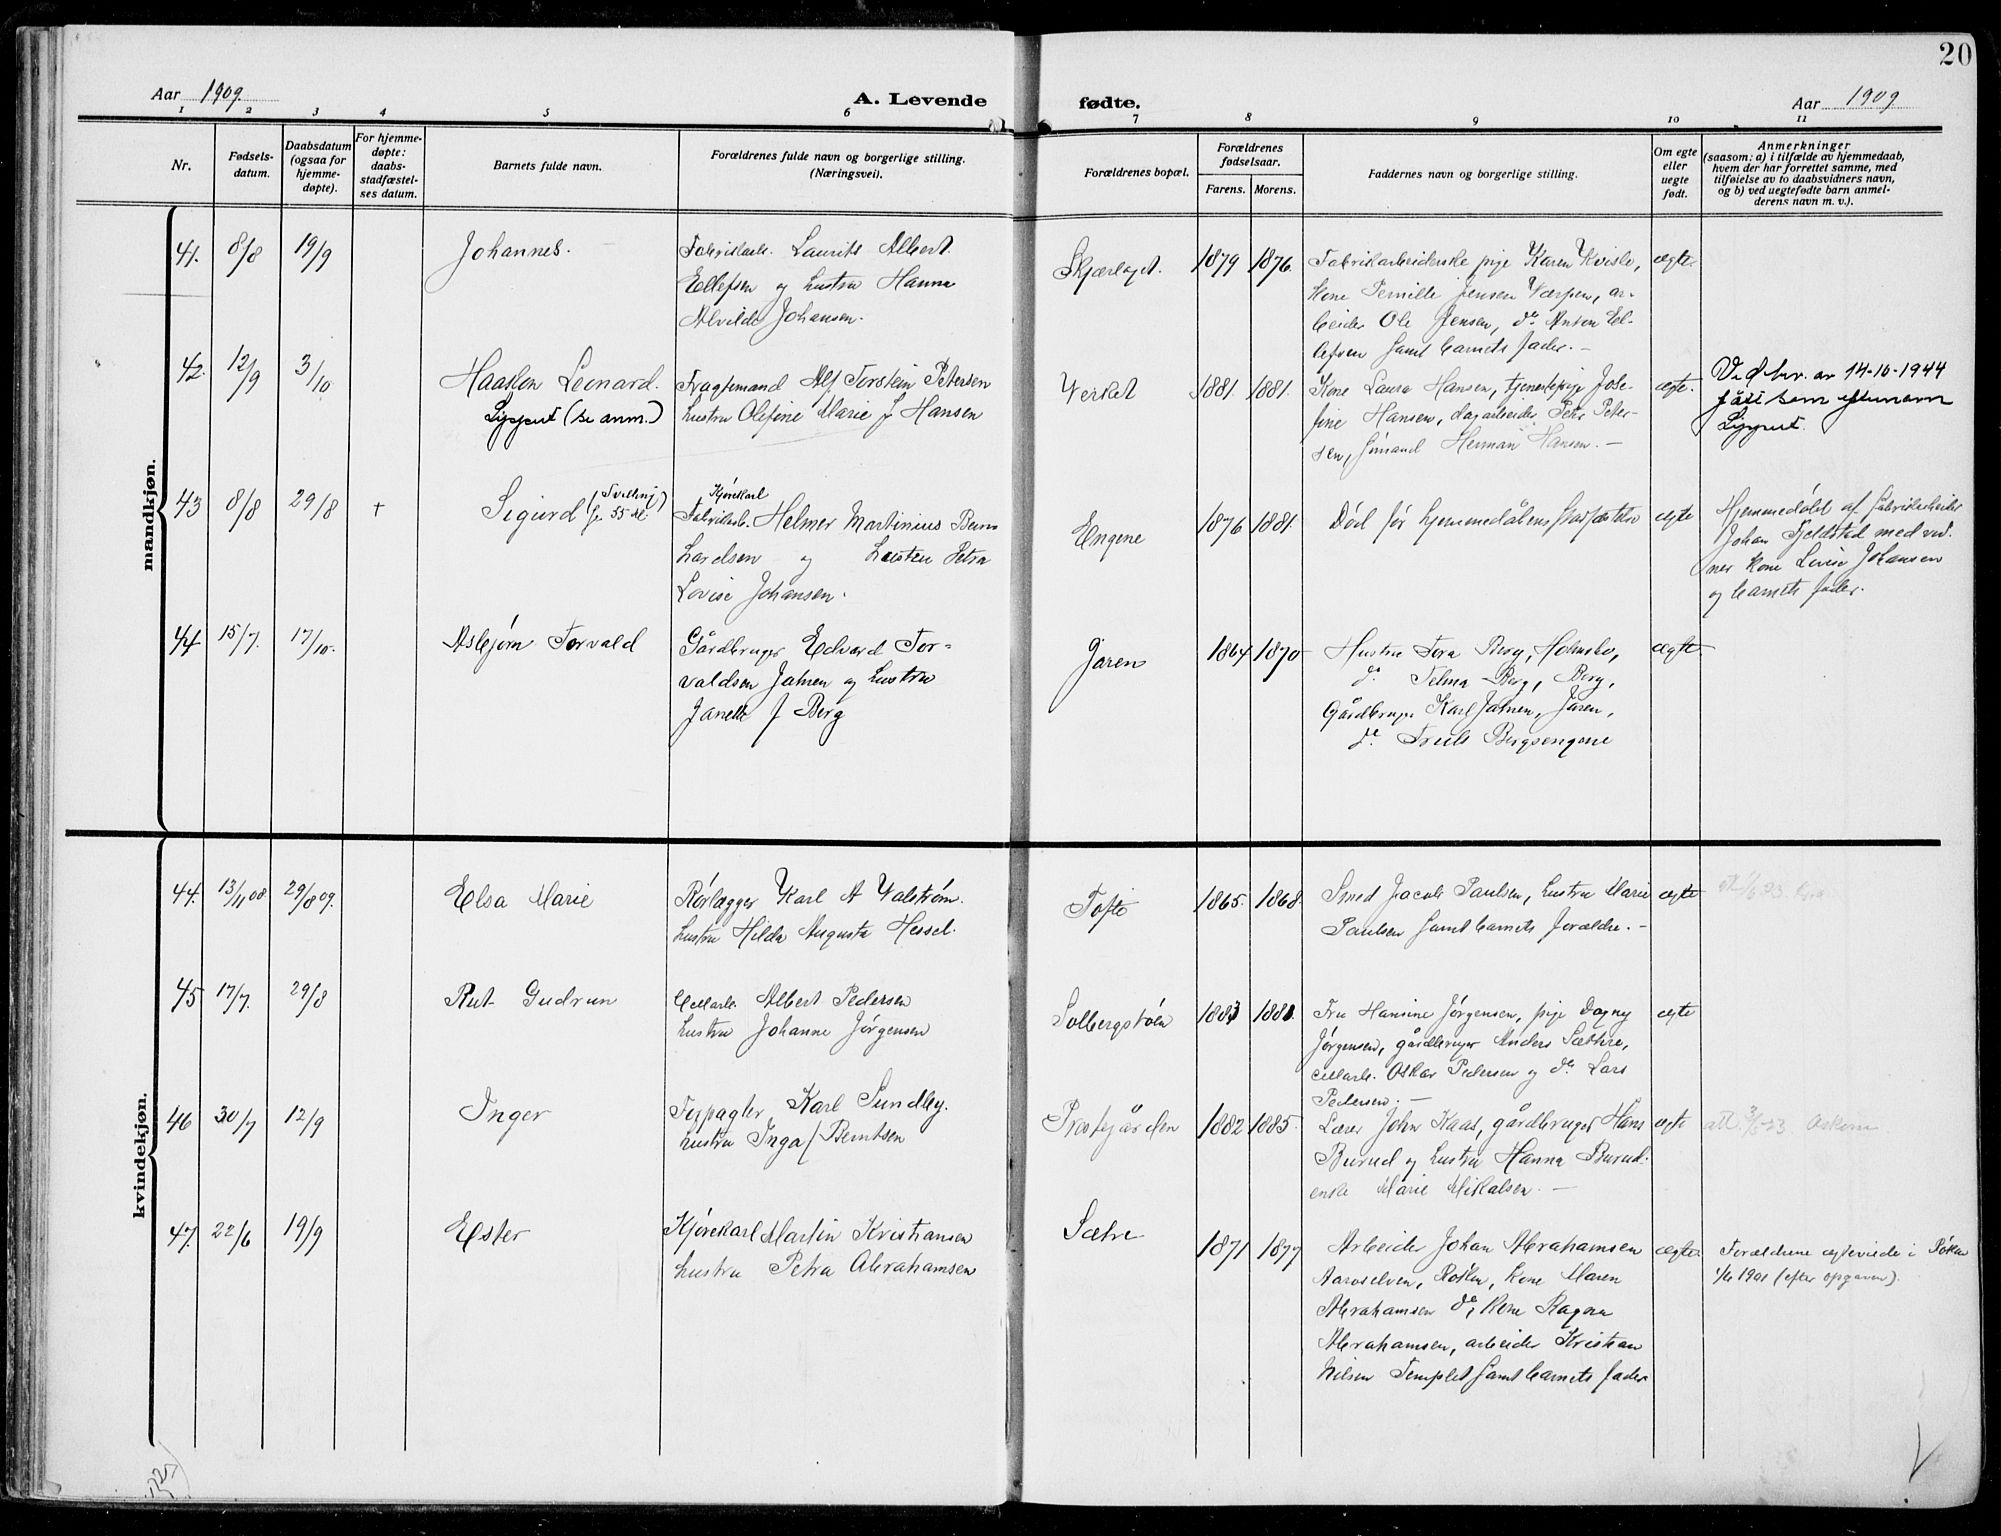 20
Aar 1909.
A. Levende fødte.
Aar 1909
1 2 3 4 5 6 7 8 9 10 11
Nr.
Fødsels-
datum.
Daabsdatum
(ogsaa for
hjemme-
døpte).
For hjemme-
døpte:
daabs-
stadfæstel-
ses datum.
Barnets fulde navn.
Forældrenes fulde navn og borgerlige stilling.
(Næringsvei).
Forældrenes bopæl.
Forældrenes
fødselsaar.
Farens. Morens.
Faddernes navn og borgerlige stilling.
Om egte
eller
uegte
født.
Anmerkninger
(saasom: a) i tilfælde av hjemmedaab,
hvem der har forrettet samme, med
tilføielse av to daabsvidners navn,
og b) ved uegtefødte barn anmel-
derens navn m. v.).
mandkjøn.
41. 8/8 19/9 Johannes.
Fabrikarb. Laurits Albert
Ellefsen og hustru Hanna
Alvilde Johansen.
Skjærlaget. 1879 1876.
Fabrikarbeiderske pige Karen Kvislo,
Kone Pernille Jensen Værpen, ar-
beider Ole Jensen, do Anton El-
lefsen samt barnets fader. —
ægte.
42. 12/9 3/10 Haakon Leonard.
(se anm.)
Fragtemand Alf Torstein Petersen
hustru Olefine Marie f Hansen
Verket 1881. 1881.
Kone Laura Hansen, tjenestepige Jose-
fine Hansen, dagarbeider Petr Peter-
sen, sømand Herman Hansen. —
ægte.
Ved br. av 14-10-1944
fått som efternavn
43 8/8 29/8 + Sigurd (Tvilling
fr 55 Al)
Kjørekarl
Fabrikarb. Helmer Martinius Bern
Lardsen og hustru Petra
Lovise Johansen.
Engene 1876 1881.
Død før hjemmedåbens stadfæstelse
ægte
Hjemmedøbt af fabrikarbeider
Johan Fjeldstad med vid-
ner Kone Lovise Johansen
og barnets fader.
44 15/7. 17/10. Asbjørn Torvald
Gårdbruger Edvard Tor-
valdsen Jahren og hustru
Janette f Berg
Jaren 1864 1870
Hustru Tora Berg, Holmsbo,
do Telma Berg, Berg,
Gårdbruger Karl Jahren, Jaren,
do Truls Bergsengene
ægte.
kvindekjøn.
44. 13/11 08 29/8 09. Elsa Marie
Rørlægger Karl A Valstrøm.
hustru Hilda Augusta Hessel.
Tofte 1865. 1868.
Smed Jacob Paulsen, hustru Marie
Paulsen samt barnets forældre. —
ægte
45 17/7. 29/8 Rut Gudrun
Cellarb. Albert Pedersen
hustru Johanne Jørgensen
Solbergstøen 1883 1881.
Fru Hansine Jørgensen, pige Dagny
Jørgensen, gårdbruger Anders Sæthre,
cellarb. Oskar Pedersen og do Lars
Pedersen. —
ægte
46 30/7 12/9 Inger
Forpagter Karl Sundby.
hustru Inga f Berntsen
Prestegården 1882 1885.
Lærer John Kaas, gårdbruger Hans
Burud og hustru Hanna Burud.
enke Marie Mikalsen. —
ægte
att. 3/5-23. Askim.
47. 22/6 19/9 Ester
Kjørekarl Martin Kristiansen
hustru Petra Abrahamsen
Sætre 1871 1877
Arbeider Johan Abrahamsen
Aaroselven, Røken, Kone Maren
Abrahamsen do, Kone Ragna
Abrahamsen, arbeider Kristian
Nilsen Templet samt barnets fader
ægte.
Forældrene egteviede i Røken
1901 (efter opgaven).